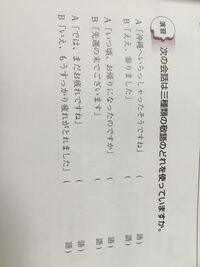 演習 次の会話は三種類の敬語のどれを使っていますか。
A「沖縄へいらっしゃったそうですね」（ 語）
B「ええ、参りました」（ 語）
A「いつ頃、お帰りになったのですか」（ 語）
B「先週の末でございます」（ 語）
A「では、まだお疲れですね」（ 語）
B「いえ、もうすっかり疲れがとれました」（ 語）